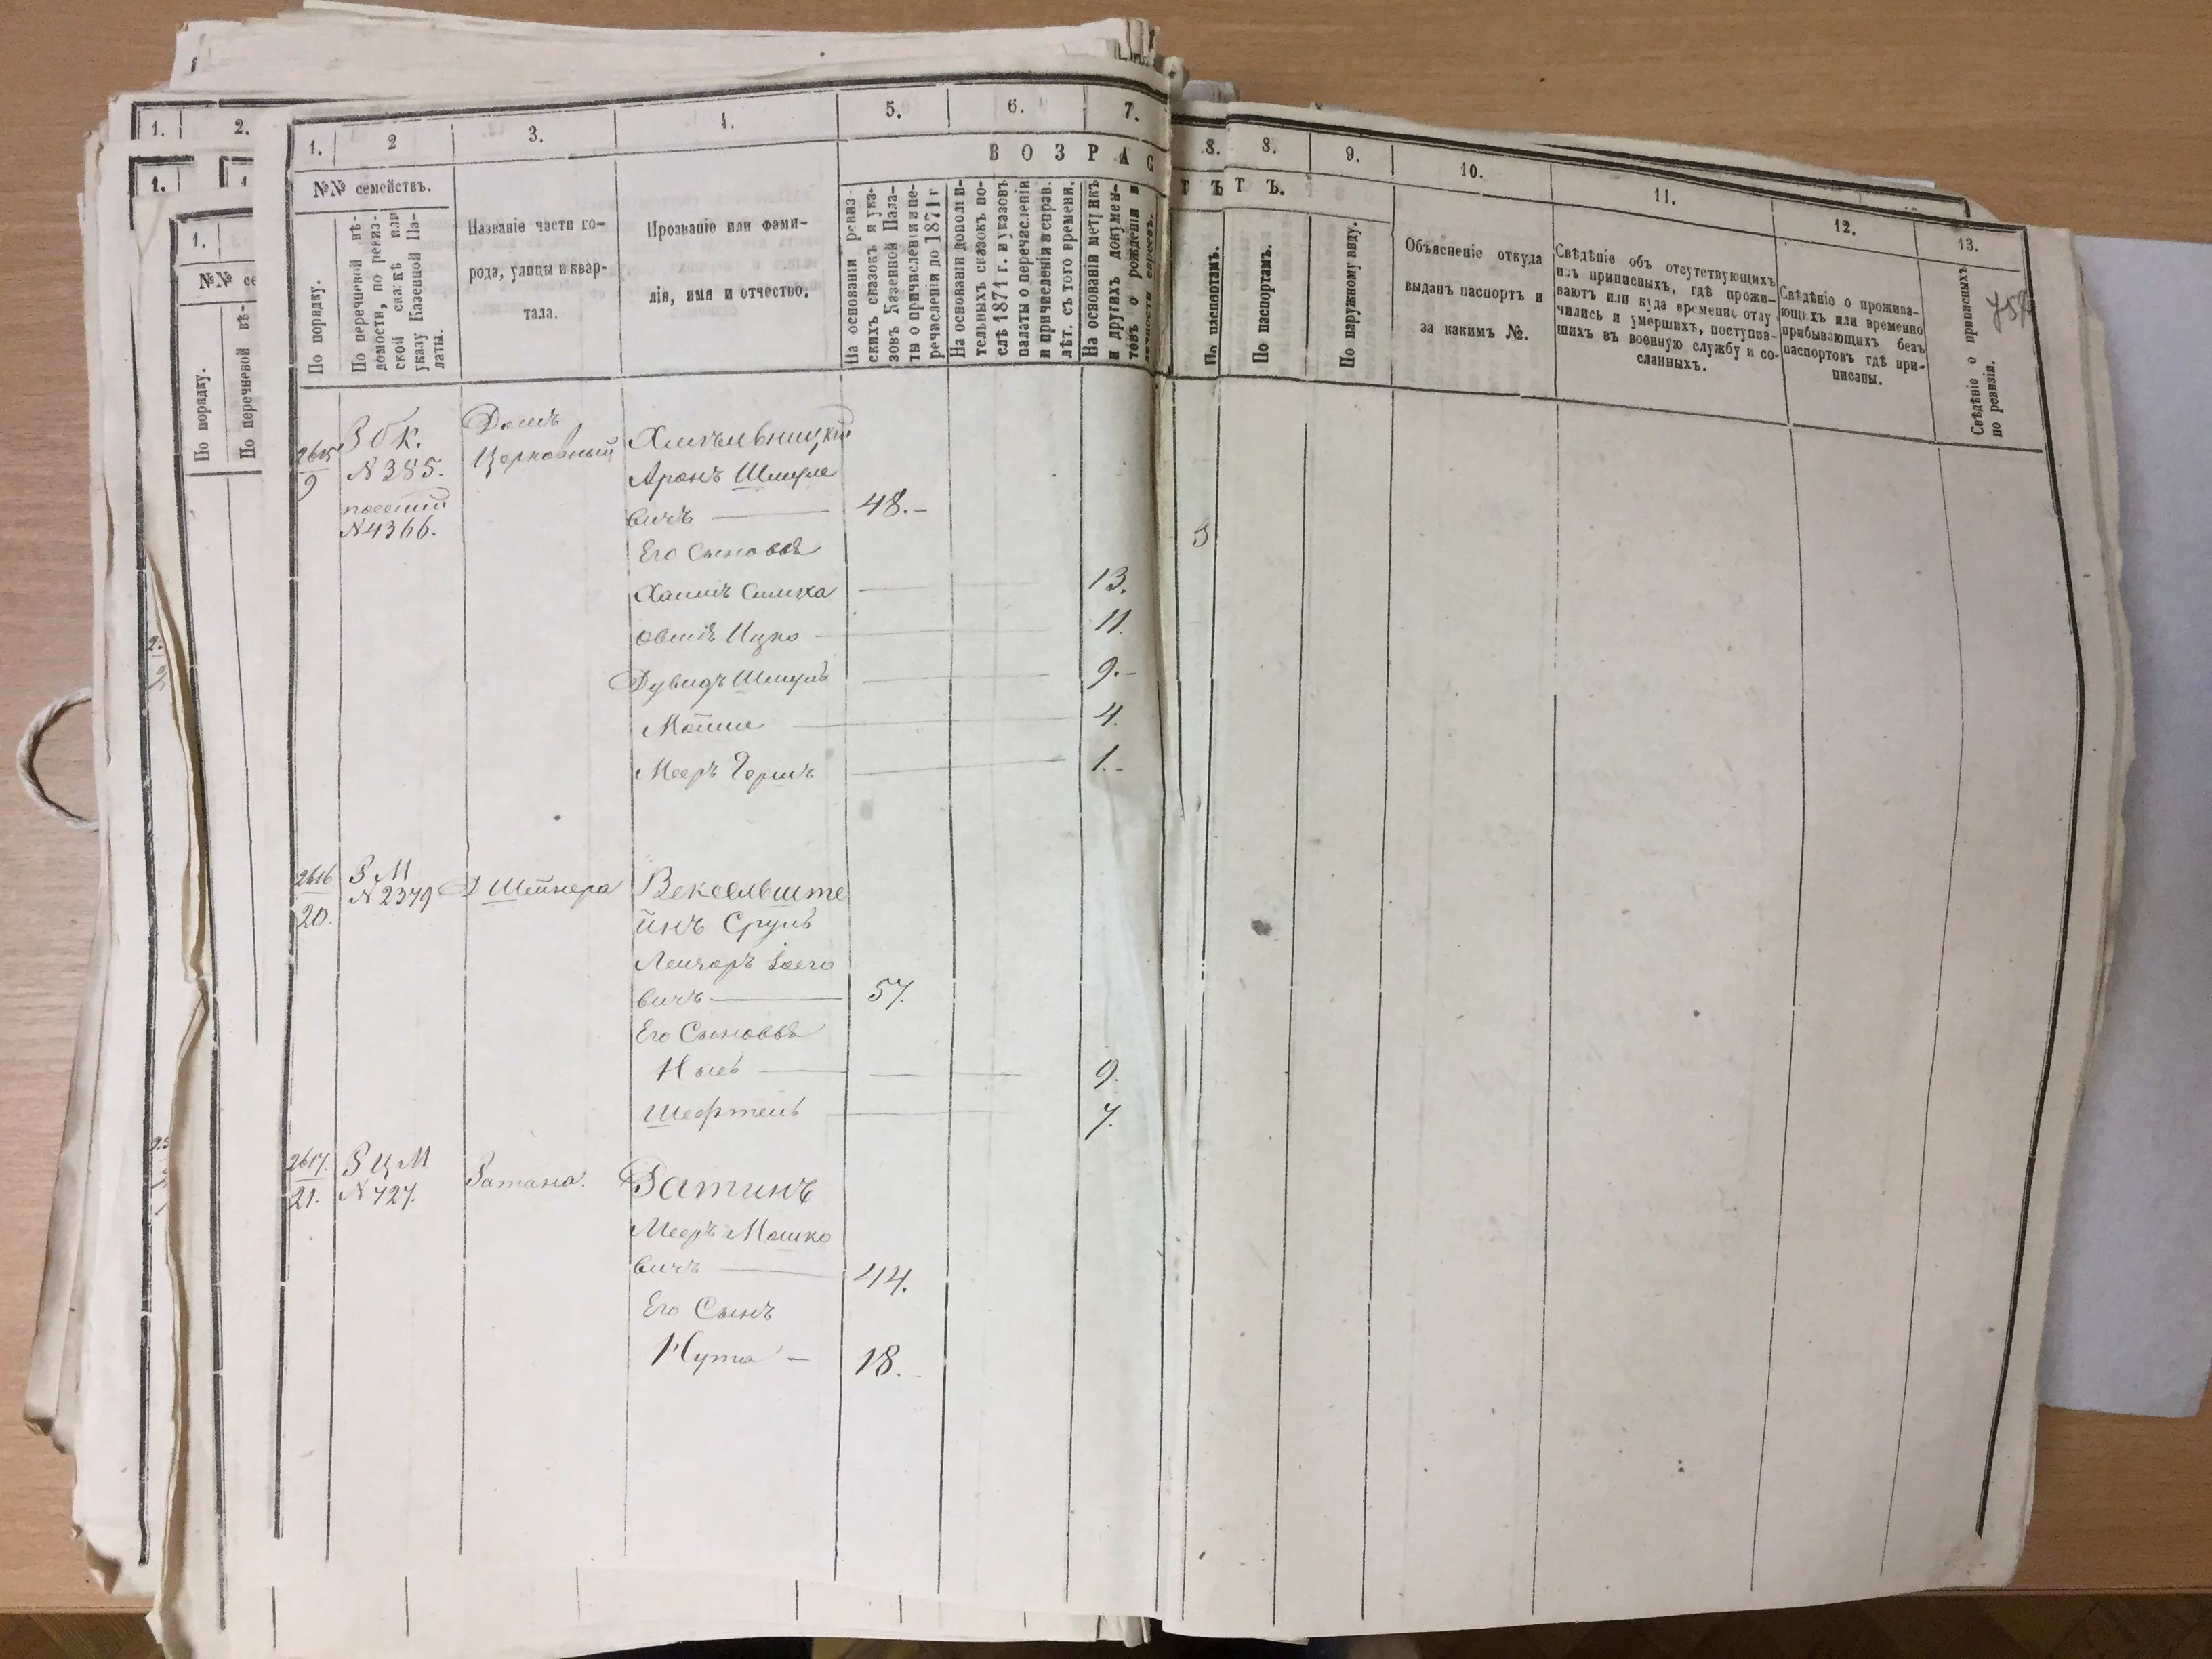 1. 2 3. 4. 5. 6. 7. 8. 8. 9. 10. 11. 12. 13.
В О З Р А С Т Ъ Т Ъ.
№№ семействъ.
По порядку.
По перечневой вѣ-
домости, по ревиз-
ской сказкѣ или
указу Казенной Па-
латы.
Названіе части го-
рода, улицы и квар-
тала.
Прозваніе или фами-
лія, имя и отчество.
На основаніи ревиз-
скихъ сказокъ и ука-
зовъ Казенной Пала-
ты о причисленіи и пе-
речисленіи до 1871 г
На основаніи дополни-
тельныхъ сказокъ по-
слѣ 1871 г. и указовъ
палаты о перечисленіи
и причисленіи и исправ.
лѣт. съ того времени.
На основаніи метрикъ
и другихъ докумен-
товъ о рожденіи и
личности евреевъ.
По паспортамъ.
По паспортамъ.
По наружному виду.
Объясненіе откуда
выданъ паспортъ и
за какимъ №.
Свѣдѣніе объ отсутствующихъ
изъ приписныхъ, гдѣ прожи-
ваютъ или куда временно отлу
чились и умершихъ, поступив-
шихъ въ военную службу и со-
сланныхъ.
Свѣдѣніе о прожива-
ющихъ или временно
прибывающихъ безъ
паспортовъ гдѣ при-
писаны.
Свѣдѣніе о приписныхъ
по ревизіи.
1. 2.
1.
1.
№№ се
По порядку.
По перечневой вѣ-
2615
9
З б к.
N 385.
N 4366.
Домъ
Церковный
Хмѣльницкій
Аронъ Шмуле
вичъ — 48.-
Его Сыновья
Хаимъ Симха — 13.
Овшія Ицко — 11.
Дувидъ Шмуль — 9.-
Мойше — 4.
Мееръ Гершъ — 1.-
2616
20.
З М
N 2379
Д Шейнера
Вексельште
йнъ Сруль
вичъ — 57.
Его Сыновья
9.
Шефтель — 7.
2617.
21.
З Ц М.
N 727.
Затана.
Затинъ
Мееръ Мошко
вичъ — 44.
Его Сынъ
Нута — 18.-